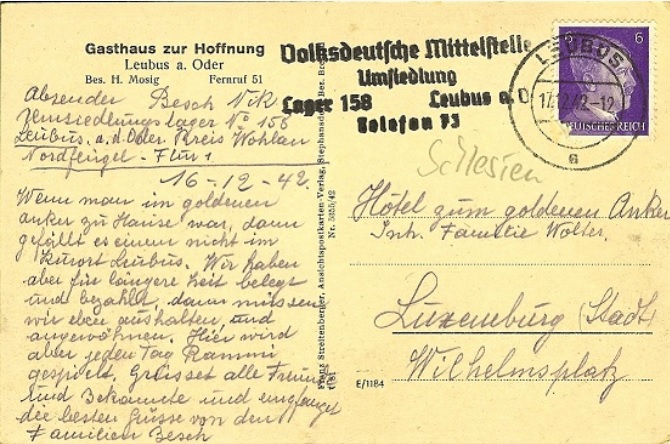 Gasthaus zur Hoffnung
Leubus a. Oder
Bes. H. Mosig Fernruf 51
Absender Besch Nik
Umsiedlungslager No 158
Leubus. a. d. Oder Kreis Wohlau
Nordflügel - Flur 1
16-12-42.
Wenn man im goldenen
Anker zu Hause war, dann
gefällt es einem nicht im
Kurort Leubus. Wir haben
aber für längere Zeit belegt
und bezahlt, dann müssen
wir eben aushalten, und
angewöhnen. Hier wird
aber jeden Tag Rammi
gespielt. Grüsset alle Freun
und Bekannte und empfanget
die besten Grüsse von der
Familien Besch
Franz Streitenberger, Ansichtspostkarten-Verlag, Stephansdorf, Bez. Bre
Nr. 5055/42
Volksdeutsche Mittelstelle
Umsiedlung
Lager 158 Leubus a. O
Telefon 73
LEUBUS
17.12.42.-12
a
6 6
DEUTSCHES REICH
Schlesien
Hôtel zum goldenen Anker
Inh. Familie Wolter.
Luxemburg (Stadt)
Wilhelmsplatz
E/1184